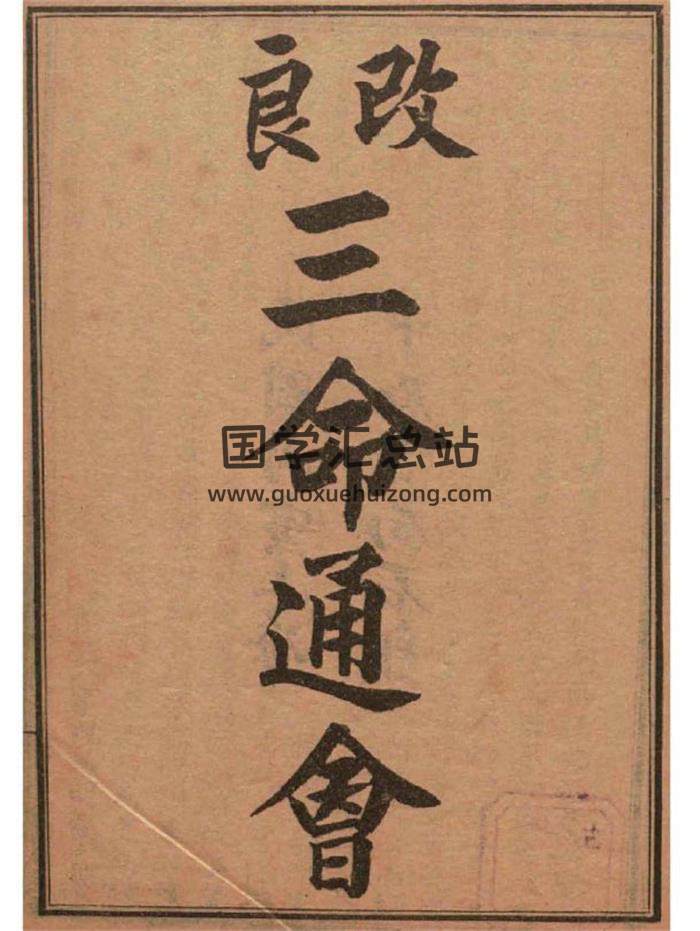 改良
三命通會
国学汇总站
www.guoxuehuizong.com